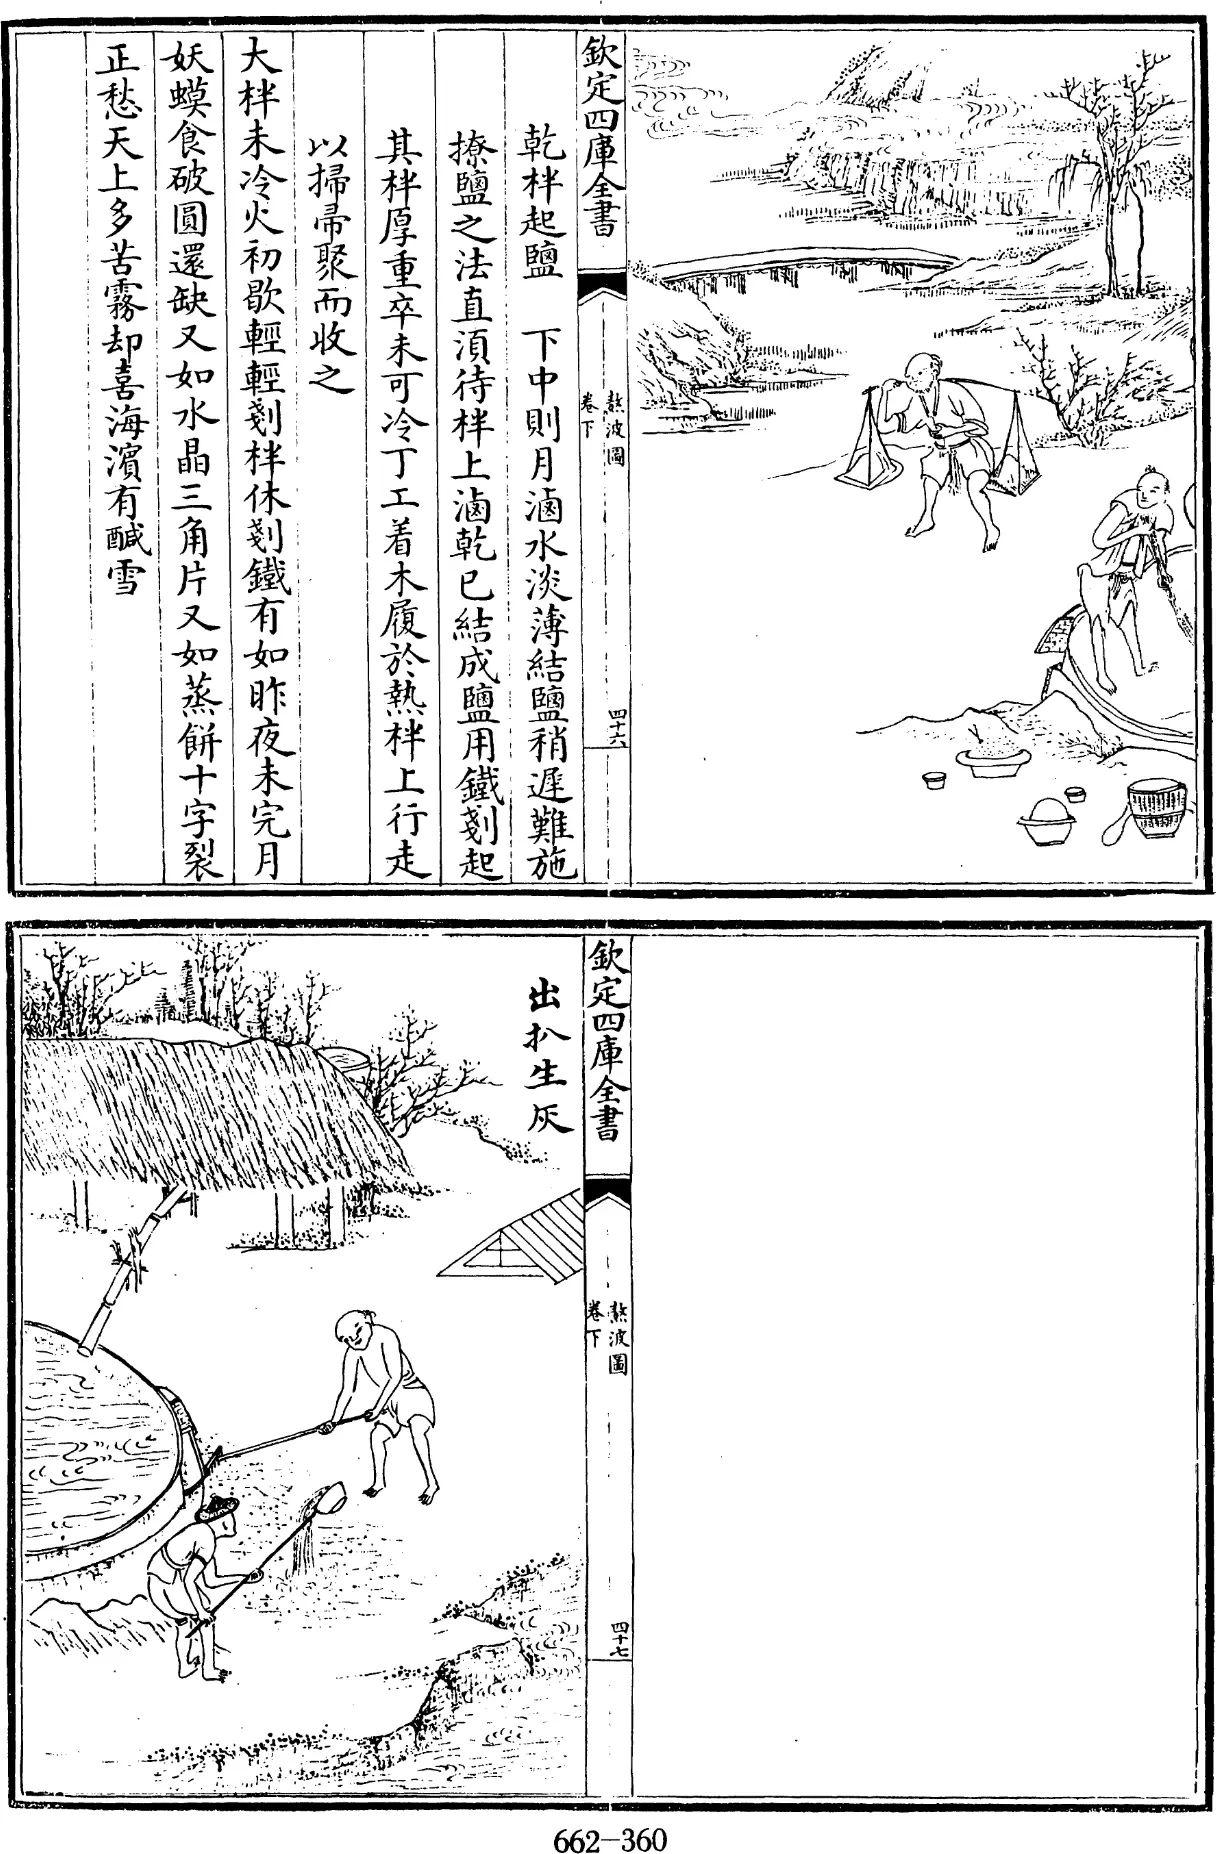 欽定四庫全書
熬波圖
卷下
四十六
乾柈起鹽　下中則月滷水淡薄結鹽稍遲難施
撩鹽之法直須待柈上滷乾已結成鹽用鐵剗起
其柈厚重卒未可冷丁工着木履於熱柈上行走
以掃帚聚而收之
大柈未冷火初歇輕輕剗柈休剗鐵有如昨夜未完月
妖蟆食破圓還缺又如水晶三角片又如蒸餅十字裂
正愁天上多苦霧却喜海濱有鹹雪
欽定四庫全書
熬波圖
卷下
四十七
出扒生灰
662-360